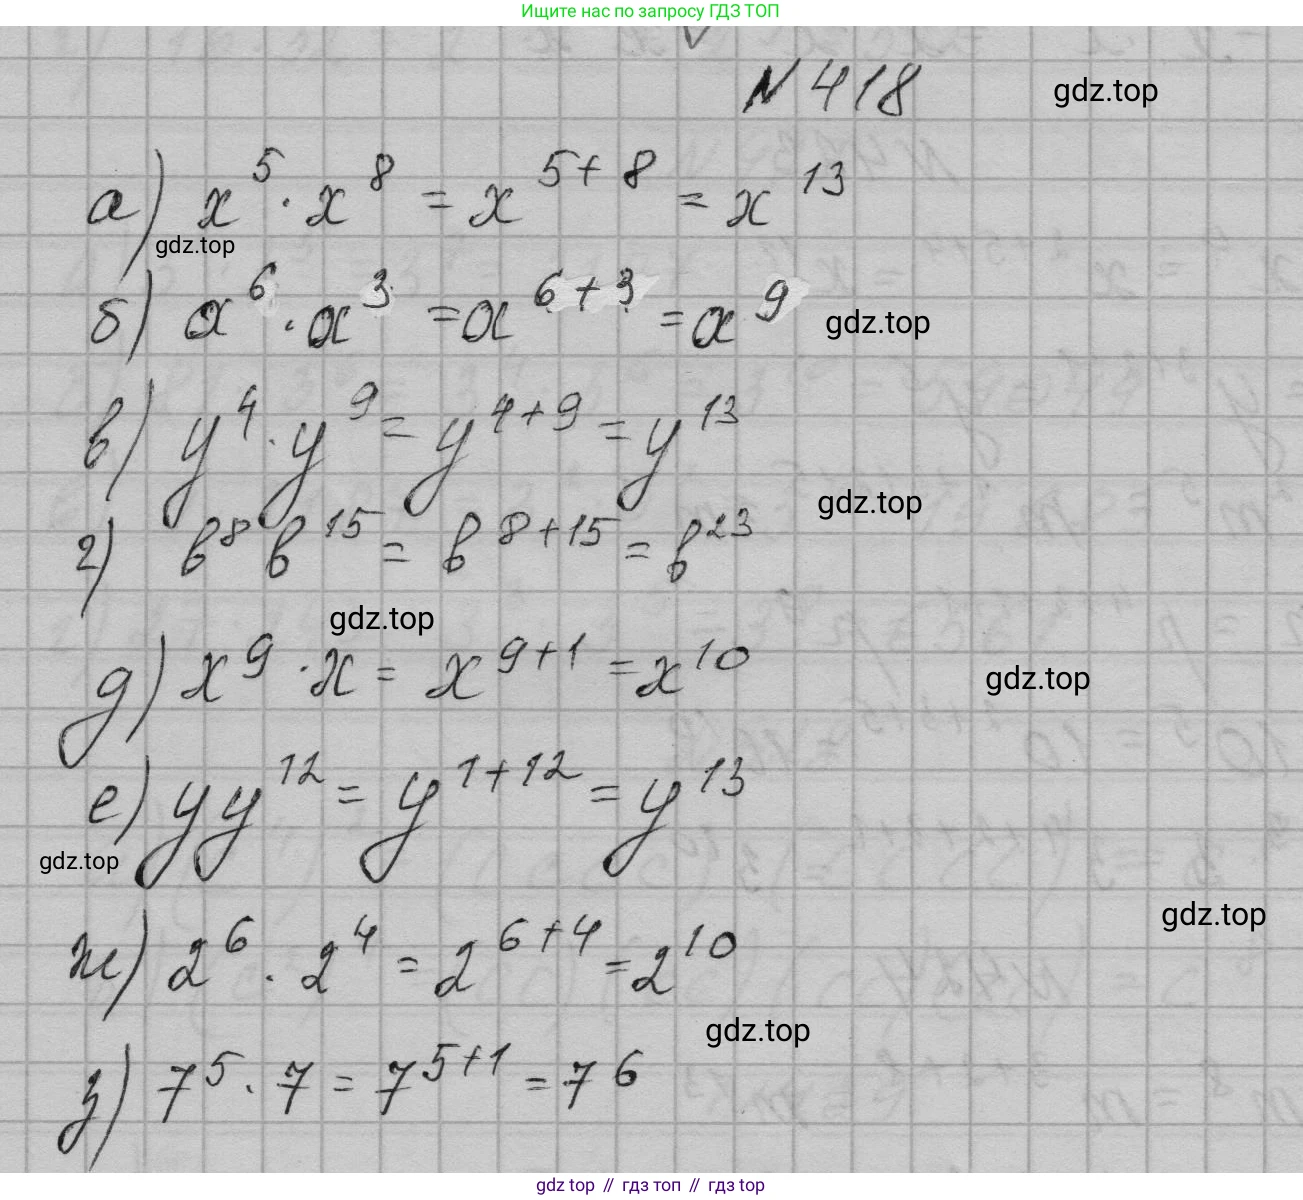 Ищите нас по запросу ГДЗ ТОП
N 418
gdz.top
а) x⁵ · x⁸ = x⁵⁺⁸ = x¹³
gdz.top
б) a⁶ · a³ = a⁶⁺³ = a⁹
gdz.top
в) y⁴ · y⁹ = y⁴⁺⁹ = y¹³
gdz.top
г) b⁸ b¹⁵ = b⁸⁺¹⁵ = b²³
gdz.top
д) x⁹ · x = x⁹⁺¹ = x¹⁰
gdz.top
е) y y¹² = y¹⁺¹² = y¹³
gdz.top
gdz.top
ж) 2⁶ · 2⁴ = 2⁶⁺⁴ = 2¹⁰
gdz.top
з) 7⁵ · 7 = 7⁵⁺¹ = 7⁶
gdz top // гдз топ // гдз top